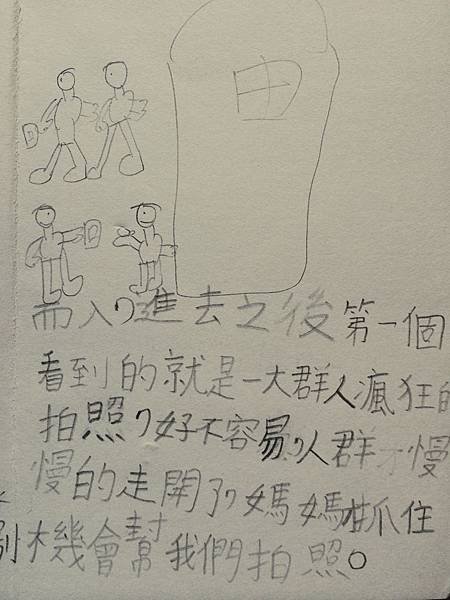 而入，進去之後第一個
看到的就是一大群人瘋狂的
拍照，好不容易，人群才慢
慢的走開了，媽媽才抓住
機會幫我們拍照。